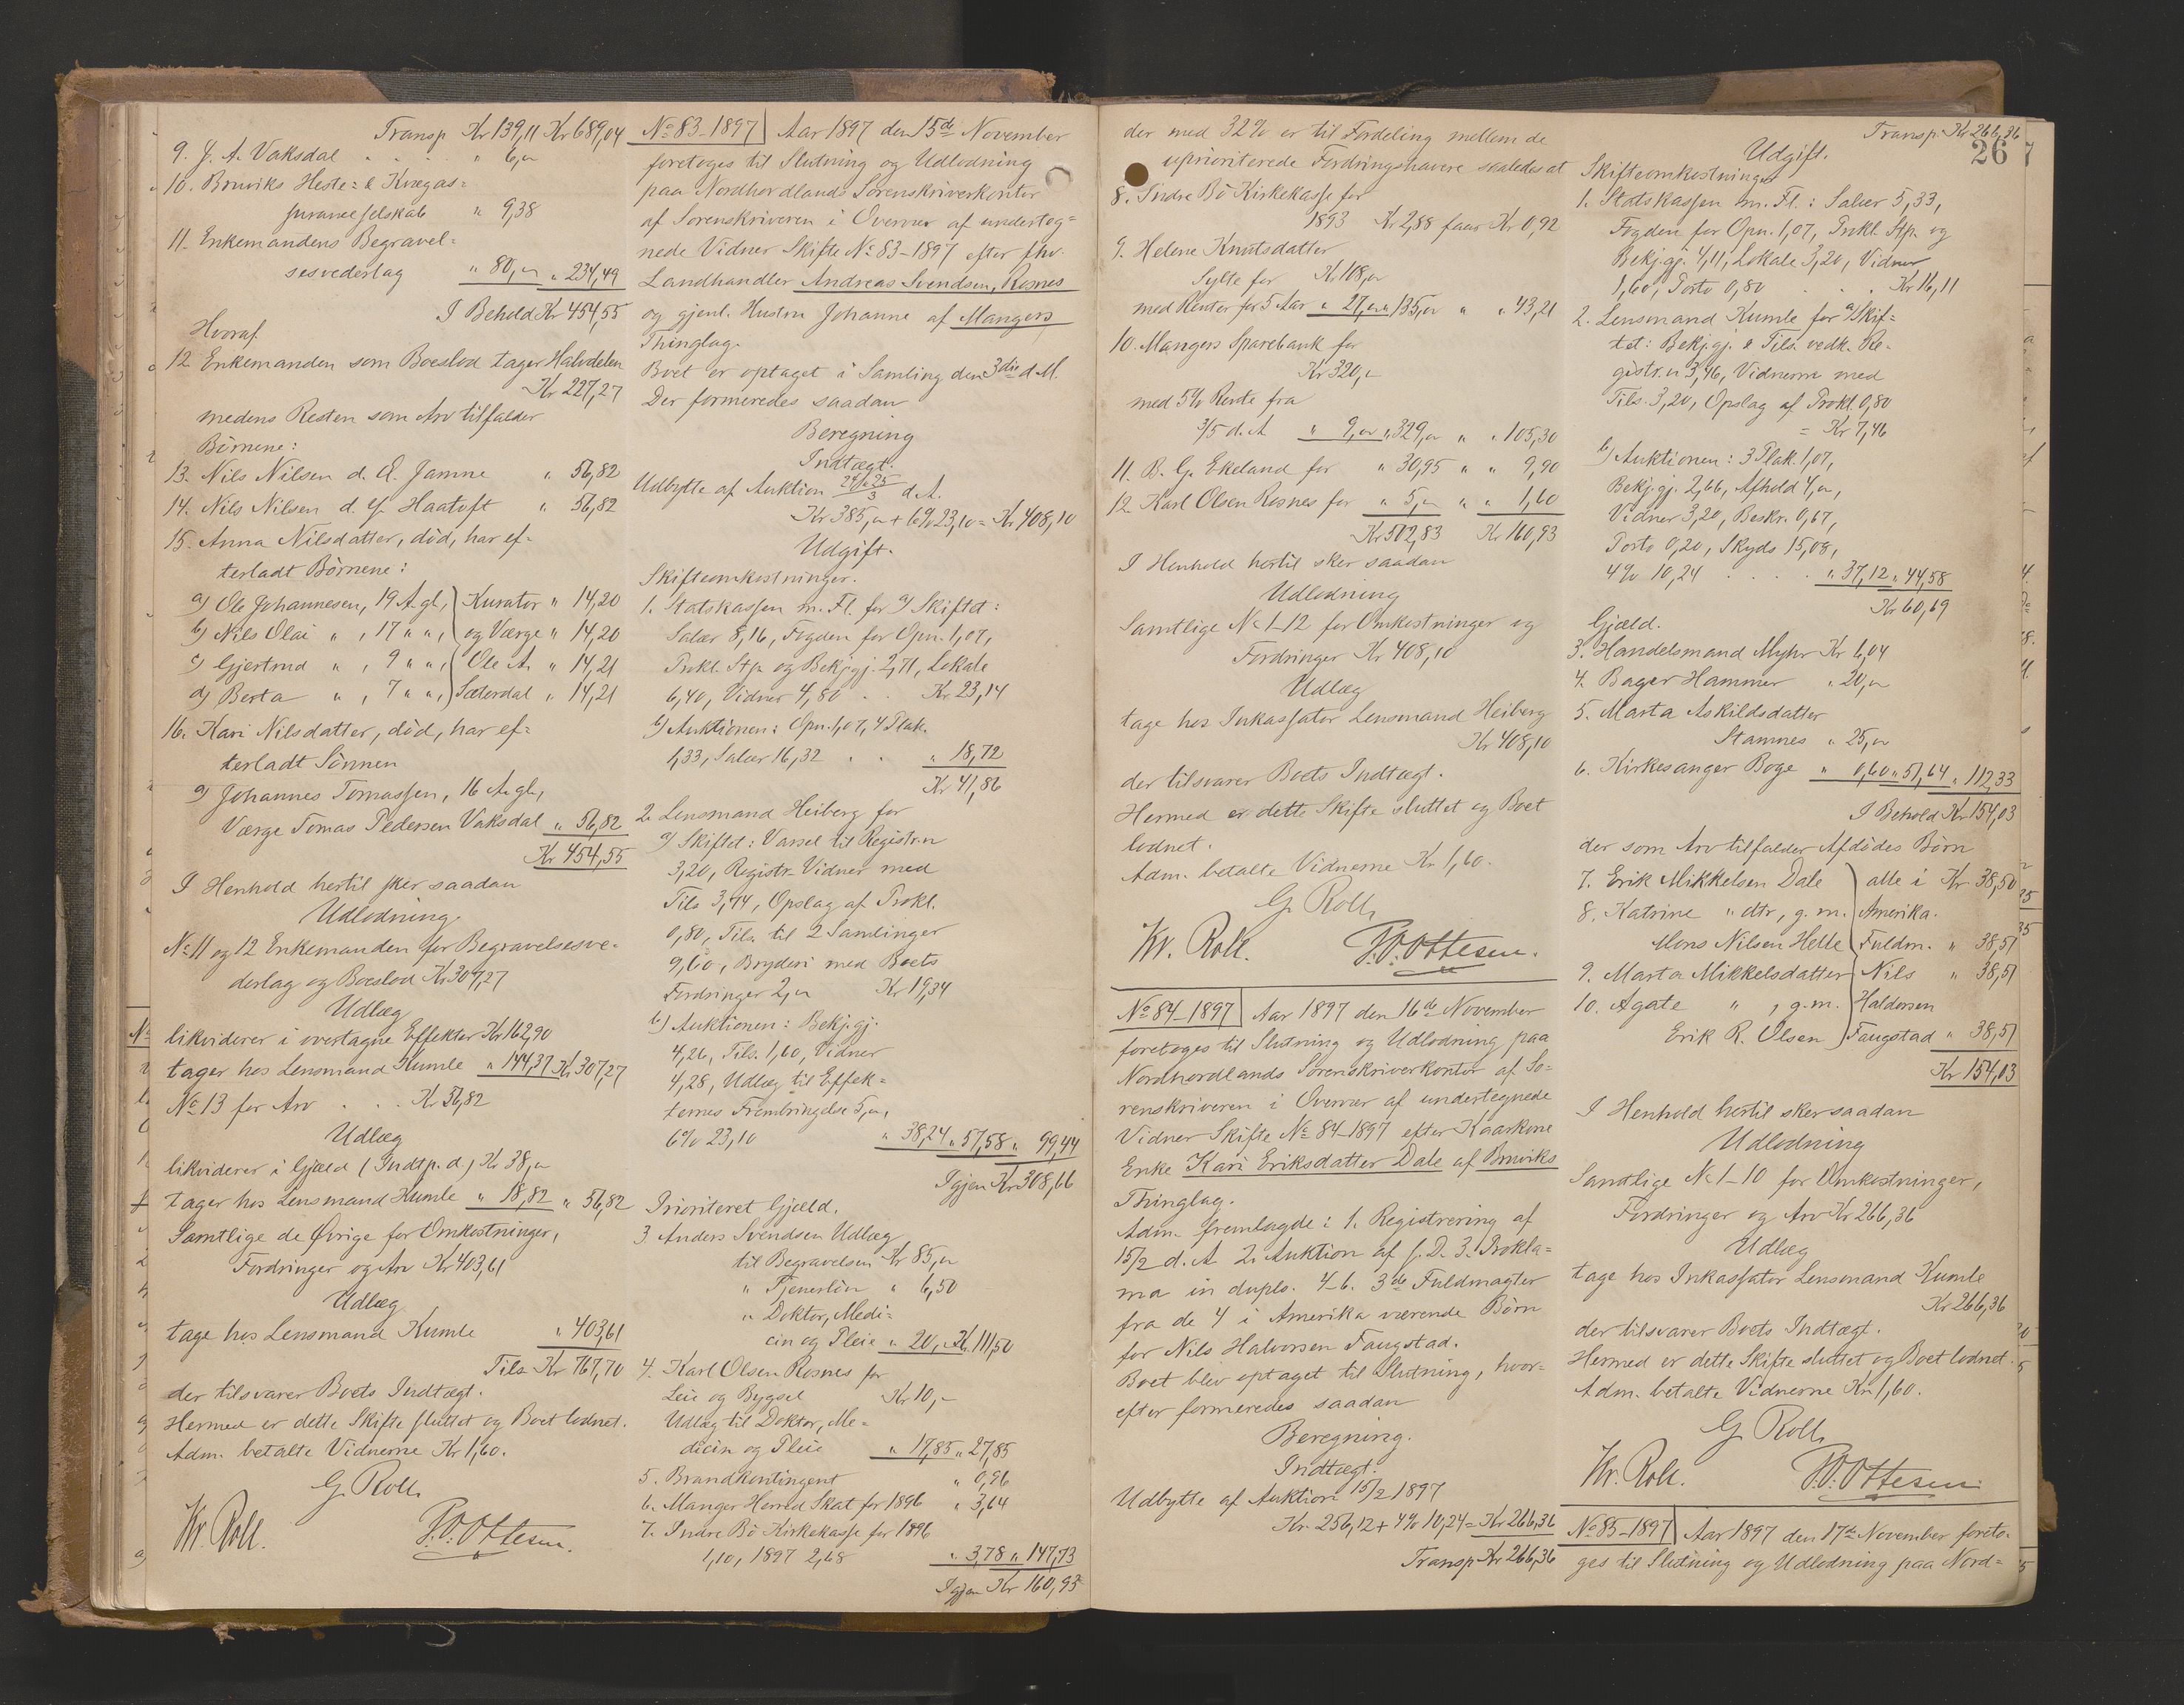 Transp Kr 139,11 Kr 689,04
9. J. A. Vaksdal " 6,"
10. Bruviks Heste= & Kvægas=
suranceselskab " 9,38
11. Enkemandens Begravel=
sesvederlag " 80,- " 234,49
I Behold Kr 454,55
Hvoraf
12. Enkemanden som Boeslod tager Halvdelen
Kr 227,27
medens Resten som Arv tilfalder
Børnene:
13. Nils Nilsen d. E. Jamne " 56,82
14. Nils Nilsen d. y. Haatoft " 56,82
15. Anna Nilsdatter, död, har ef=
terladt Børnene:
a) Ole Johannesen, 19 A. gl., Kurator " 14,20
b) Nils Olai " , 17 " " , og Værge " 14,20
c) Gjertrud " , 9 " " , Ole A. " 14,21
d) Berta " , 7 " " , Sæterdal " 14,21
16. Kari Nilsdatter, död, har ef=
terladt Sönnen
a) Johannes Tomassen, 16 A. gl.,
Værge Tomas Pedersen Vaksdal " 56,82
Kr 454,55
I Henhold hertil sker saadan
Udlodning.
No 11 og 12 Enkemanden for Begravelsesve-
derlag og Boeslod Kr 307,27
Udlæg
likviderer i overtagne Effekter Kr 162,90
tager hos Lensmand Kumle " 144,37 Kr 307,27
No 13 for Arv . . . Kr 56,82
Udlæg
likviderer i Gjæld (Indtp. d) Kr 38,"
tager hos Lensmand Kumle " 18,82 " 56,82
Samtlige de Øvrige for Omkostninger,
Fordringer og Arv Kr 403,61
Udlæg
tage hos Lensmand Kumle " 403,61
Tils. Kr 767,70
der tilsvarer Boets Indtægt.
Hermed er dette Skifte sluttet og Boet lodnet.
Adm. betalte Vidnerne Kr 1,60.
G. Roll
Kr. Roll. P.O. Ottesen.
No 83-1897 Aar 1897 den 15de November
foretoges til Slutning og Udlodning
paa Nordhordlands Sorenskriverkontor
af Sorenskriveren i Overvær af undertog=
nede Vidner Skifte No 83-1897 efter fhv.
Landhandler Andreas Svendsen, Rosnes
og gjenl. Hustru Johanne af Mangers
Thinglag.
Boet er optaget i Samling den 3die d. M.
Der formeredes saadan
Beregning
Indtægt.
Udbytte af Auktion 24/2 25/3 d. A.
Kr 385,- + 6% 23,10 = Kr 408,10
Udgift.
Skifteomkostninger.
1. Statskassen m. Fl. for a) Skiftet:
Salær 8,16, Fogden for Opn. 1,07,
Prokl. Stp. og Bekjgj. 2,71, Lokale
6,40, Vidner 4,80 . . Kr 23,14
b) Auktionen: Opn. 1,07, 4 Plak.
1,33, Salær 16,32 . . " 18,72
Kr 41,86
2. Lensmand Heiberg for
a) Skiftet: Varsel til Registr.n
3,20, Registr. Vidner med
Tils 3,74, Opslag af Prokl.
0,80, Tils. til 2 Samlinger
9,60, Bryderi med Boets
Fordringer 2,- Kr 19,34
b) Auktionen: Bekj.gj.
4,26, Tils. 1,60, Vidner
4,28, Udlæg til Effek=
ternes Frembringelse 5,-,
6% 23,10 " 38,24 " 57,58 " 99,44
Igjen Kr 308,66
Prioriteret Gjæld.
3. Anders Svendsen Udlæg
til Begravelsen Kr 85,-
" Tjenerlön " 6,50
" Doktor, Medi=
cin og Pleie " 20,- Kr. 111,50
4. Karl Olsen Rosnes for
Leie og Bygsel Kr 10,-
Udlæg til Doktor, Me=
dicin og Pleie " 17,85 " 27,85
5. Brandkontingent " 0,96
6. Manger Herred Skat for 1896 " 3,64
7. Indre Bö Kirkekasse for 1896
1,10, 1897 2,68 " 3,78 " 147,73
Igjen Kr 160,93
der med 32% er til Fordeling mellem de
uprioriterede Fordringshavere saaledes at
8. Indre Bö Kirkekasse for
1893 Kr 2,88 faar Kr 0,92
9. Helene Knutsdatter
Sylte for Kr 108,-
med Renter for 5 Aar " 27,- " 135,- " " 43,21
10. Mangers Sparebank for
Kr 320,-
med 5% Rente fra
3/5 d. A " 9,- " 329,- " " 105,30
11. B. G. Ekeland for " 30,95 " " 9,90
12. Karl Olsen Rosnes for " 5,- " " 1,60
Kr 502,83 Kr 160,93
I Henhold hertil sker saadan
Udlodning
Samtlige No 1-12 for Omkostninger og
Fordringer Kr 408,10
Udlæg
tage hos Inkassator Lensmand Heiberg
Kr 408,10
der tilsvarer Boets Indtægt.
Hermed er dette Skifte sluttet og Boet
lodnet.
Adm. betalte Vidnerne Kr 1,60.
G. Roll
Kr. Roll. P.O. Ottesen.
No 84-1897 Aar 1897 den 16de November
foretoges til Slutning og Udlodning paa
Nordhordlands Sorenskriverkontor af So=
renskriveren i Overvær af undertegnede
Vidner Skifte No 84-1897 efter Kaarkone
Enke Kari Eriksdatter Dale af Bruviks
Thinglag.
Adm. fremlagde: 1. Registrering af
15/2 d. A 2. Auktion af s. D. 3. Prokla=
ma in duplo. 4-6. 3de Fuldmagter
fra de 4 i Amerika værende Børn
for Nils Halvorsen Faugstad.
Boet blev optaget til Slutning, hvor=
efter formeredes saadan
Beregning.
Indtægt.
Udbytte af Auktion 15/2 1897
Kr. 256,12 + 4% 10,24 = Kr 266,36
Transp Kr 266,36
Transp. Kr 266,36
26
Udgift.
Skifteomkostninger
1. Statskassen m. Fl.: Salær 5,33,
Fogden for Opn. 1,07, Prokl. Stp. og
Bekj.gj. 4,11, Lokale 3,20, Vidner
1,60, Porto 0,80 . . . Kr 16,11
2. Lensmand Kumle for a) Skif=
tet: Bekj.gj. & Tils. vedk. Re-
gistr.n 3,46, Vidnerne med
Tils. 3,20, Opslag af Prokl. 0,80
= Kr 7,46
b) Auktionen: 3 Plak. 1,07,
Bekj.gj. 2,66, Afhold 4,-,
Vidner 3,20, Beskr. 0,67,
Porto 0,20, Skyds 15,08,
4% 10,24 . . . . " 37,12 " 44,58
Kr 60,69
Gjæld.
3. Handelsmand Myhr Kr 6,04
4. Bager Hammer " 20,-
5. Marta Askildsdatter
Stamnes " 25,-
6. Kirkesanger Boge " 0,60 " 51,64 " 112,33
I Behold Kr 154,03
der som Arv tilfalder Afdödes Børn
7. Erik Mikkelsen Dale alle i Kr. 38,50
8. Katrine " dtr, g. m. Amerika.
Mons Nilsen Helle Fuldm. " 38,51
9. Marta Mikkelsdatter Nils " 38,51
10. Agate " , g. m. Haldorsen
Erik R. Olsen Faugstad " 38,51
Kr 154,03
I Henhold hertil sker saadan
Udlodning
Samtlige No 1-10 for Omkostninger,
Fordringer og Arv Kr 266,36
Udlæg
tage hos Inkassator Lensmand Kumle
Kr 266,36
der tilsvarer Boets Indtægt.
Hermed er dette Skifte sluttet og Boet lodnet.
Adm. betalte Vidnerne Kr 1,60.
G. Roll
Kr. Roll. P.O. Ottesen
No 85-1897 Aar 1897 den 17de November foreto-
ges til Slutning og Udlodning paa Nord=